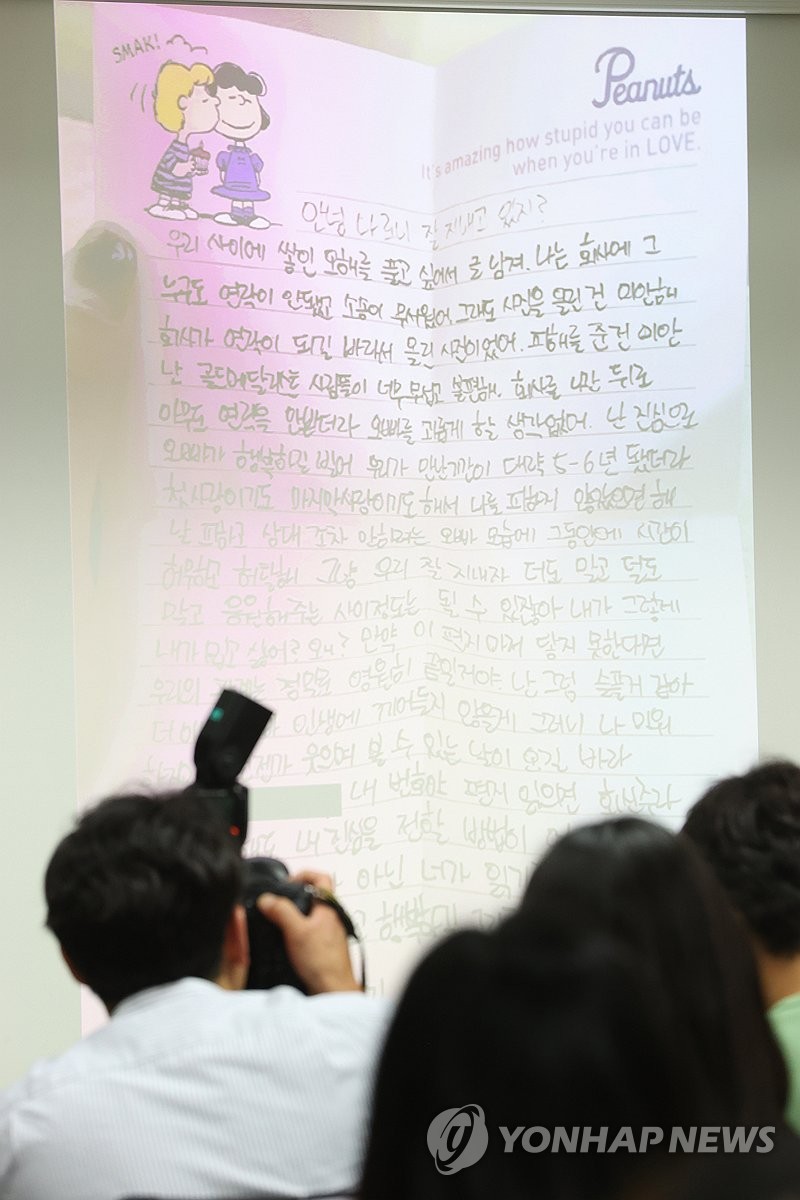 SMAK!
Peanuts
It's amazing how stupid you can be
when you're in LOVE.
안녕 나 잘 지내고 있지?
우리 사이에 쌓인 오해를 풀고 싶어서 글 남겨. 나는 회사에 그
누구도 연락이 안됐고 소송이 무서웠어. 그래도 사진을 올린 건 미안해
회사가 연락이 되길 바라서 올린 사진이었어. 피해를 준건 미안
난 골드메달리스트 사람들이 너무 무섭고 불편해. 회사를 나간 뒤로
아무도 연락을 안받더라 오빠를 괴롭게 할 생각없어. 난 진심으로
오빠가 행복하길 빌어 우리가 만난기간이 대략 5-6년 됐더라
첫사랑이기도 마지막사랑이기도 해서 나를 피하지 않았으면 해
날 피하고 상대 조차 안하려는 오빠 모습에 그동안에 시간이
허무하고 허탈해 그냥 우리 잘 지내자 더도 말고 덜도
말고 응원해주는 사이정도는 될 수 있잖아 내가 그렇게
내가 밉고 싫어? 왜? 만약 이 편지마저 닿지 못한다면
우리의 관계는 정말로 영원히 끝일거야. 난 그럼 슬플거 같아
더 인생에 끼어들지 않을게 그러니 나 미워
웃으며 볼 수 있는 날이 오길 바라
내 번호야 편지 읽으면 회신주라
내 진심을 전할 방법이
아닌 너가 읽기
행복
YONHAP NEWS